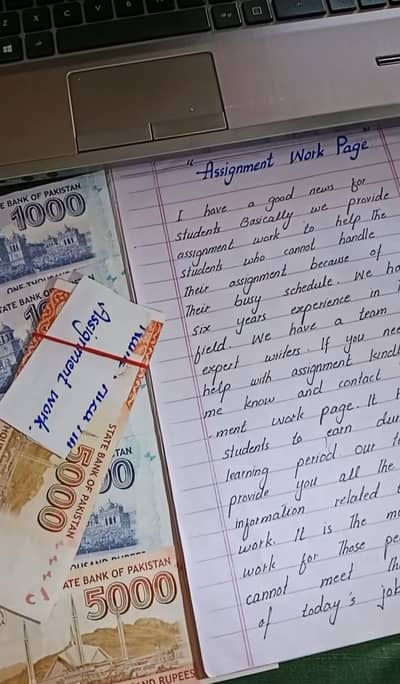 " Assignment Work Page "
I have a good news for
students Basically we provide
assignment work to help the
students who cannot handle
Their assignment because of
Their busy schedule. We ha
six years experience in
field. We have a team
expert writers. If you nee
help with assignment kindl
me know and contact
ment work page. It
students to earn dur
learning period our te
provide you all the
information related
work. It is The m
work for Those pe
cannot meet Th
of today's job
E BANK OF PAKISTAN
1000
ONE THOU
TATE BANK O
Assignment work
5000
STATE BANK OF PAKISTAN
TAN
00
OUSAND RUPEES
ATE BANK OF PAKISTAN
5000
AND RUPEES